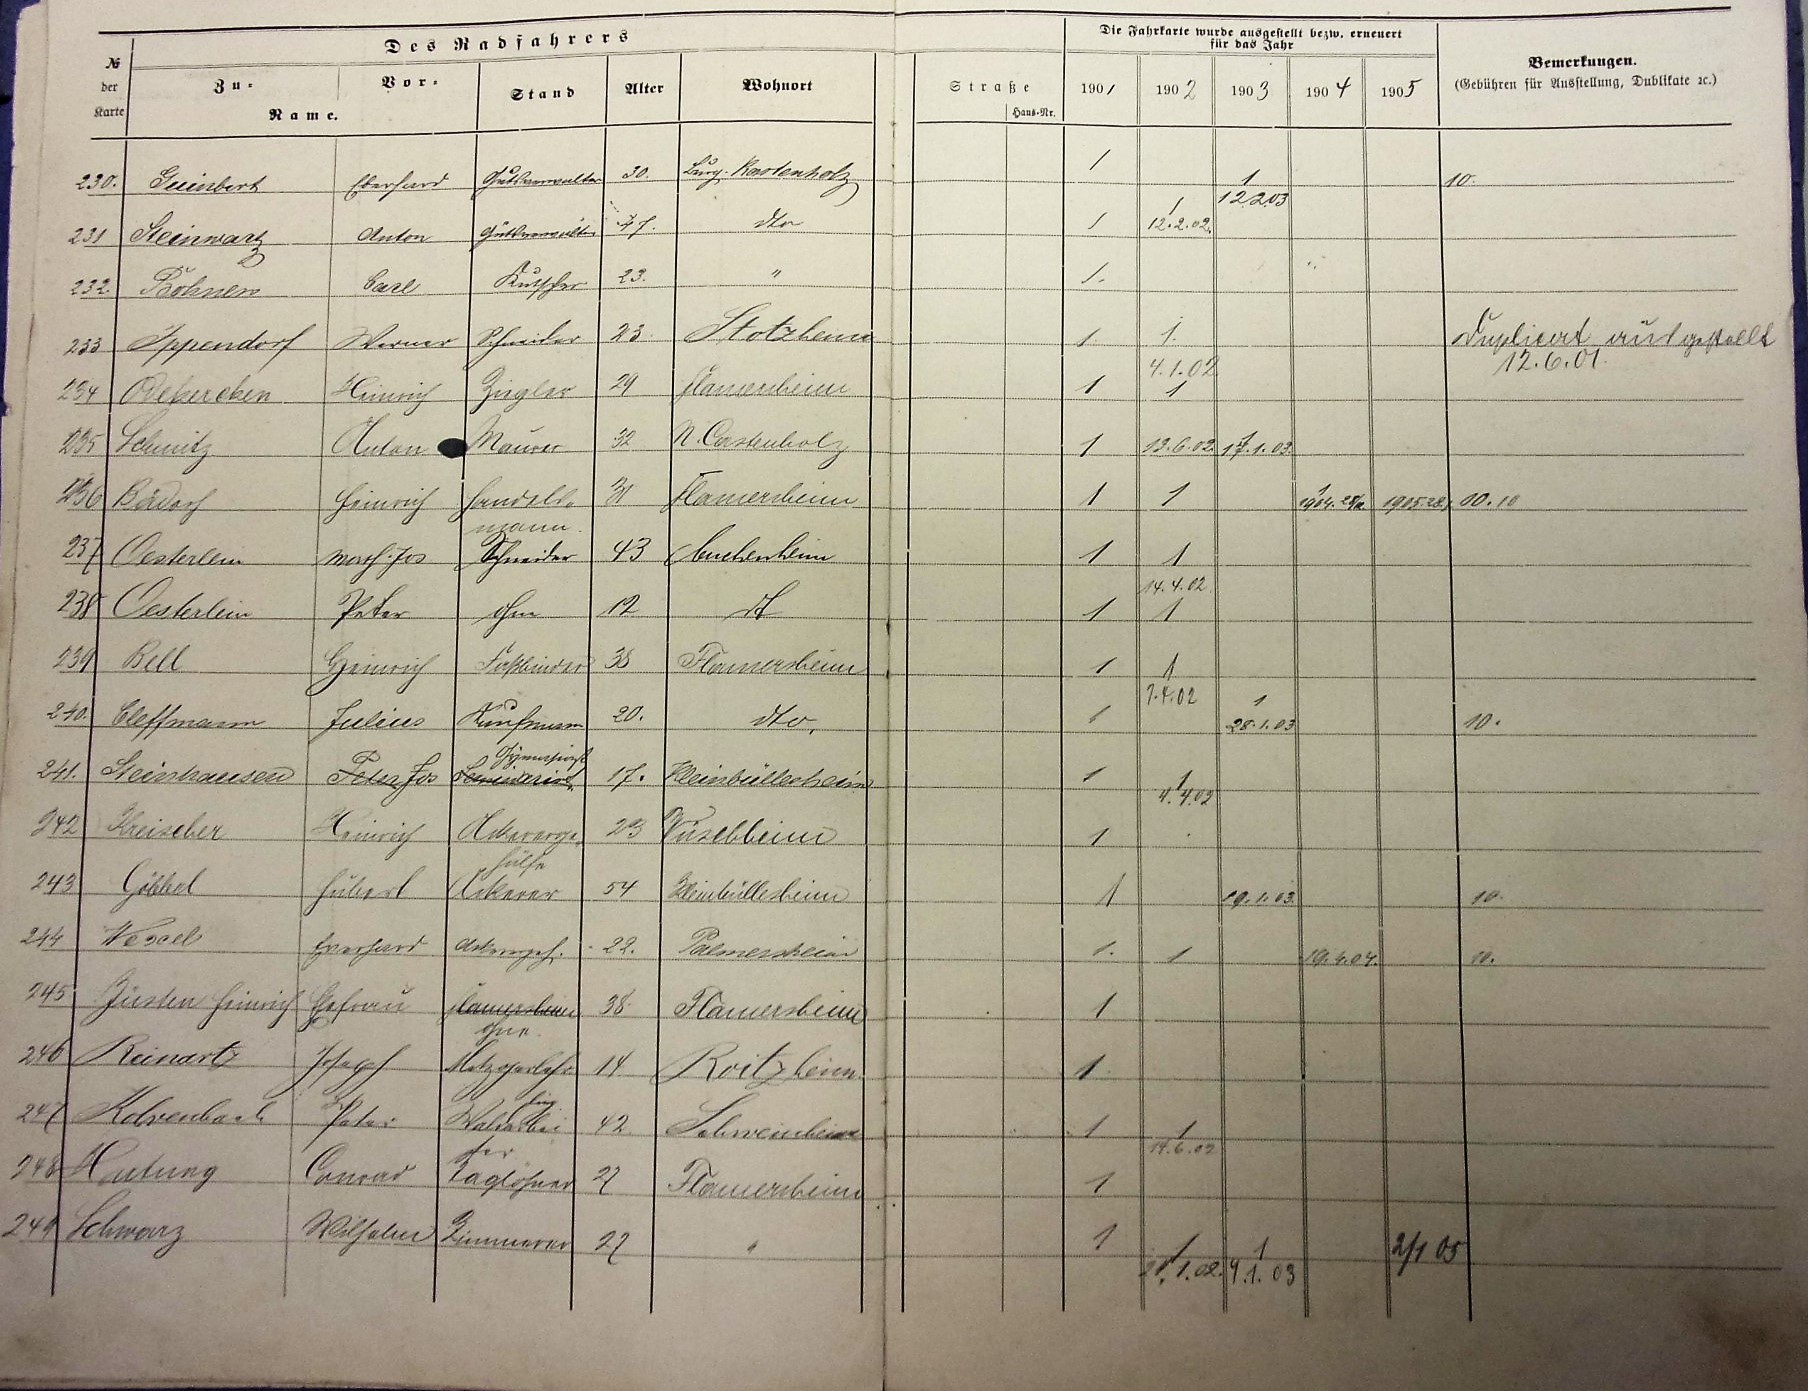 Des Radfahrers
Die Fahrkarte wurde ausgestellt bezw. erneuert
für das Jahr
№ der Karte
Zu- Vor-
Name.
Stand Alter Wohnort
Straße Haus-Nr.
1901 1902 1903 1904 1905
Bemerkungen.
(Gebühren für Ausstellung, Duplikate ꝛc.)
230. Eberhard Gutsverwalter 30. Burg- 1 1 10.
12.2.03
231 Steinwartz Anton Gutsverwalter 47. dto 1 1
12.2.02.
232. Böhnen Carl Kutscher 23. " 1.
233 Ippendorf Werner Schneider 23 Stotzheim 1. 1. Duplicat ausgestellt
4.1.02 12.6.01.
234 Heinrich Ziegler 29 Flamersheim 1 1
235 Schmitz Anton Maurer 32 N. Castenholz 1 13.6.02. 17.1.03.
236 Heinrich Handels- 31 Flamersheim 1 1 1904. 1905. 10. 10
mann.
237 Oesterlein Math. Jos Schneider 43 Cuchenheim 1 1
14.4.02
238 Oesterlein Peter ohne 12 dt 1 1
239 Bell Heinrich Faßbinder 38 Flamersheim 1 1
7.4.02
240. Cleffmann Julius Kaufmann 20. dto, 1 1 10.
28.1.03
Gymnasiast
241. Steinhausen Peter Jos 17. Kleinbüllesheim 1 1
4.4.02
242 Kreischer Heinrich Ackerarge- 23 Wüschheim 1
hülfe
243 Göbbel Hubert Ackerer 54 Kleinbüllesheim 1 19.1.03. 10.
244 Wessel Everhard Ackergeh. 22. Palmersheim 1. 1 19.4.04. 10.
245 Jüsten Heinrich Ehefrau Flamersheim 38 Flamersheim 1
ohne.
246 Reinartz Joseph Metzgerlehr 14 Roitzheim 1
ling
247 Kolvenbach Peter Waldarbei 42 Schweinheim 1 1
ter 14.6.02
248 Hartung Conrad Taglöhner 27 Flamersheim 1
249 Schwarz Wilhelm Zimmerer 27 " 1 1 1 2/1 05
21.1.02. 9.1.03